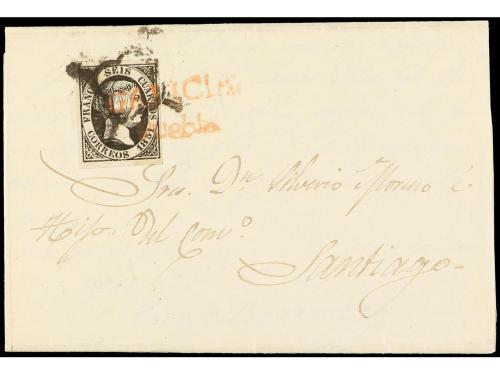 FRANCO SEIS CUARTOS
CORREOS 1851
GALICIA
Puebla
Sres. Dn. Silverio Moreno é
Hijo. Del Comº.
Santiago